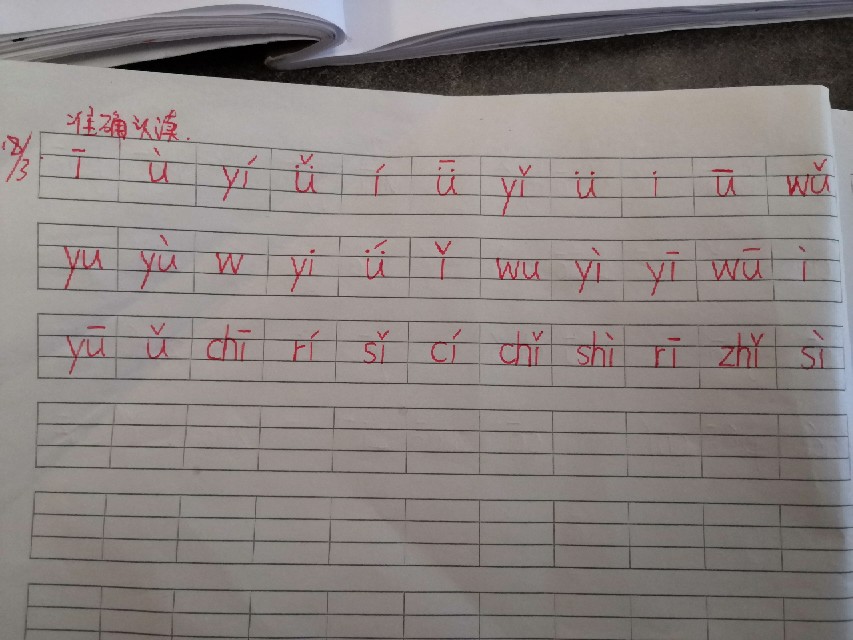 准确认读.
18/3
ī ù yí ǚ í ǖ yǐ ü i ū wǔ
yu yù w yi ǘ ǐ wu yì yī wū ì
yū ǔ chī rí sǐ cí chǐ shì rī zhǐ sì